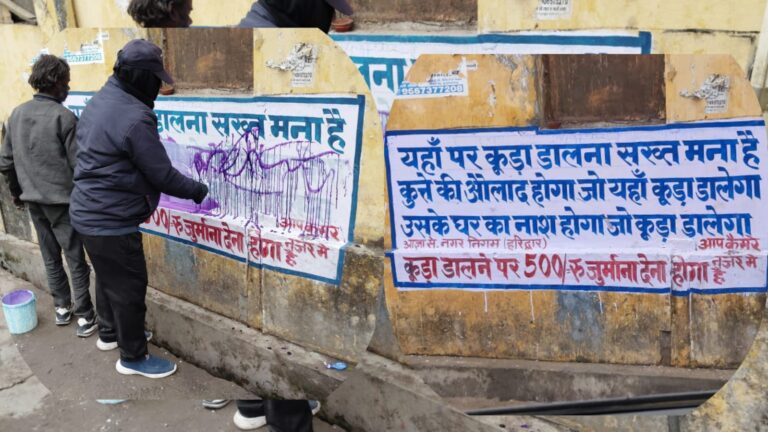 डालना सख्त मना है
आप कैमरे
रु जुर्माना देना होगा नजर में
है
यहाँ पर कूड़ा डालना सख्त मना है
कुत्ते की औलाद होगा जो यहाँ कूड़ा डालेगा
उसके घर का नाश होगा जो कूड़ा डालेगा
आज्ञा से. नगर निगम (हरिद्वार) आप कैमरे
कूड़ा डालने पर 500/-रु जुर्माना देना होगा नजर में
है